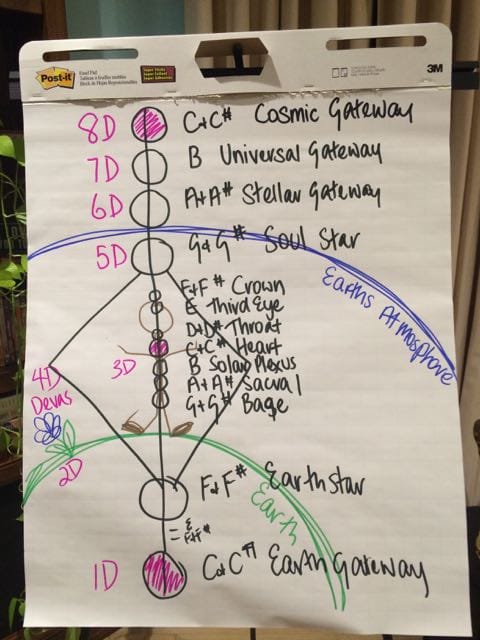 Post-it
Easel Pad
Tableau à feuilles mobiles
Super Sticky
3M
8D C+C# Cosmic Gateway
7D B Universal Gateway
6D A+A# Stellar Gateway
5D G+G# Soul Star
Earths Atmosphore
F+F# Crown
E Third Eye
D+D# Throat
3D C+C# Heart
B Solar Plexus
A+A# Sacral
G+G# Base
4D
Devas
2D
F+F# Earthstar
Earth
E
F+F#
1D C+C# Earth Gateway